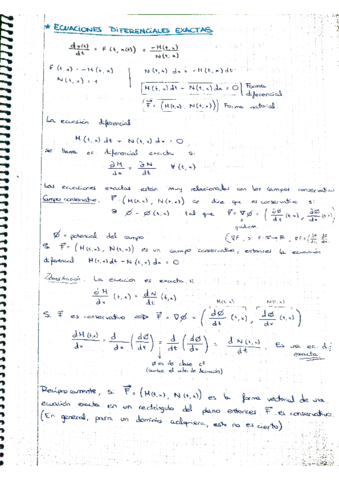 * ECUACIONES DIFERENCIALES EXACTAS
dx(t)/dt = F(t, x(t)) = -M(t,x)/N(t,x)
F(t,x) = -M(t,x)
N(t,x) = 1
N(t,x) dx = -M(t,x) dt
M(t,x) dt + N(t,x) dx = 0 Forma diferencial
F⃗ = (M(t,x), N(t,x)) Forma vectorial
La ecuación diferencial
M(t,x) dt + N(t,x) dx = 0
se llama ec diferencial exacta si
∂M/∂x = ∂N/∂t ∀(t,x)
Las ecuaciones exactas están muy relacionadas con los campos conservativos
Campo conservativo. F⃗ (M(t,x), N(t,x)) se dice que es conservativo si
∃ Ø = Ø(t,x) tal que F⃗ = ∇Ø = (∂Ø/∂t (t,x), ∂Ø/∂x (t,x))
gradiente
Ø = potencial del campo
Si F⃗ = (M(t,x), N(t,x)) es un campo conservativo, entonces la ecuación
diferencial M(t,x)dt + N(t,x)dx = 0
La ecuación es exacta si
∂M/∂x (t,x) = ∂N/∂t (t,x)
M(t,x) N(t,x)
Si F⃗ es conservativo ⟹ F⃗ = ∇Ø = (dØ/dt (t,x), dØ/dx (t,x))
dM(t,x)/dx = d/dx (dØ/dt) = d/dt (dØ/dx) = d N(t,x)/dt. Es una ec. dif exacta
Ø es de clase C²
(cambia el orden de derivación)
Recíprocamente, si F⃗ = (M(t,x), N(t,x)) es la forma vectorial de una
ecuación exacta en un rectángulo del plano entonces F⃗ es conservativo.
(En general, para un dominio cualquiera, esto no es cierto)